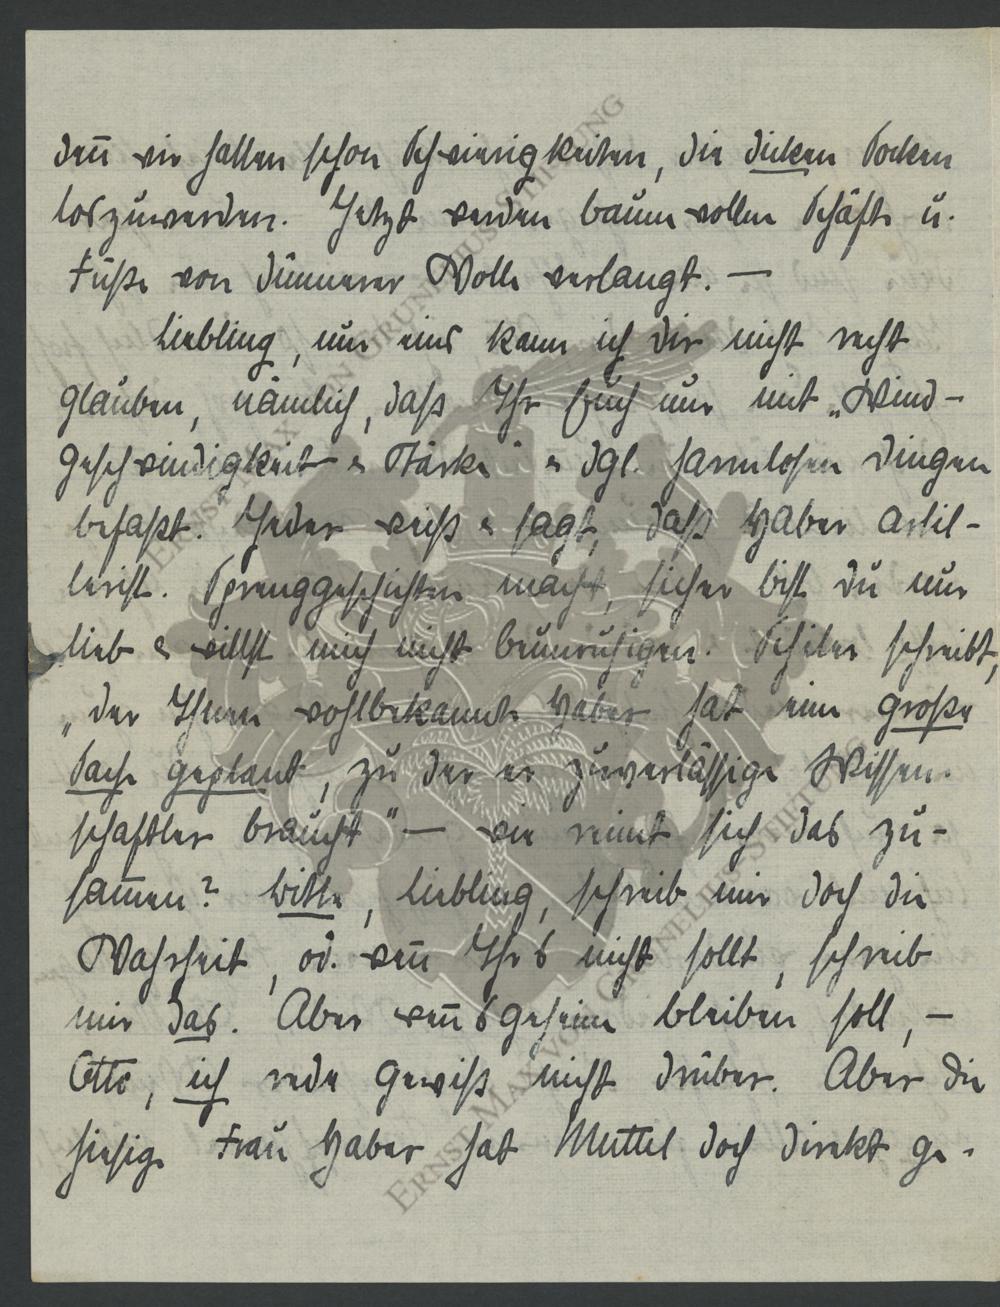 den̄ wir hatten schon Schwierigkeiten, die dicken Socken
loszuwerden. Jetzt werden baumwollne Schäfte u.
Füße von dünnerer Wolle verlangt. —
Liebling, nur eins kann ich dir nicht recht
glauben, nämlich, daß Ihr Euch nur mit „Wind-
geschwindigkeit & Stärke" & dgl. harmlosen Dingen
befaßt. Jeder weiß & sagt, daß Haber artil-
lerist. Sprenggeschichten macht, sicher bist du nur
lieb & willst mich nicht beunruhigen. schreibt,
„der Ihnen wohlbekannte Haber hat eine große
Sache geplant, zu der er zuverlässige Wissen-
schaftler braucht" — wie reimt sich das zu-
sam̄en? Bitte, Liebling, schreib mir doch die
Wahrheit, od. wen̄ Ihr's nicht sollt, schreib
mir das. Aber wen̄'s geheim bleiben soll, —
Otto, ich rede gewiß nicht drüber. Aber die
hiesige Frau Haber hat Muttel doch direkt ge-
ERNST MAX VON GRUNELIUS-STIFTUNG
ERNST MAX VON GRUNELIUS-STIFTUNG